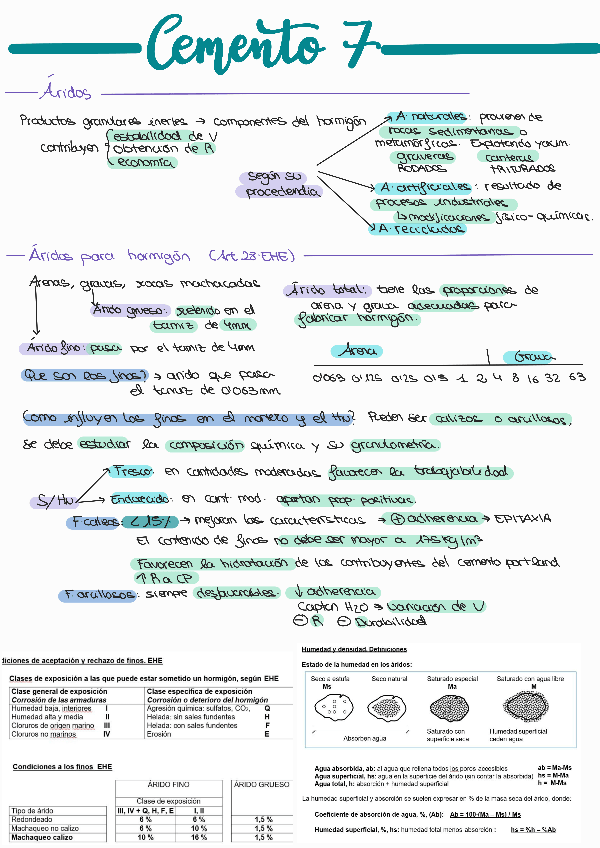 Cemento 7
Áridos
Productos granulares inertes → componentes del hormigón
contribuyen
estabilidad de V
obtención de R
economía
Según su
procedencia
A. naturales: provienen de
rocas sedimentarias o
metamórficas. Explotando yacim.
graveras canteras
RODADOS TRITURADOS
A. artificiales: resultado de
procesos industriales
↳ modificaciones físico-químicas.
A. reciclados
Áridos para hormigón (Art 28 EHE)
Arenas, gravas, rocas machacadas
Árido grueso: retenido en el
tamiz de 4mm
Árido fino: pasa por el tamiz de 4mm
Árido total: tiene las proporciones de
arena y grava adecuadas para
fabricar hormigón.
Que son los finos? → arido que pasa
el tamiz de 0'063mm
Arena Grava
0'063 0'125 0'25 0'5 1 2 4 8 16 32 63
Como influyen los finos en el mortero y el Hn? Pueden ser calizos o arcillosos,
se debe estudiar la composición química y su granulometría.
S/Hn
Fresco: en cantidades moderadas favorecen la trabajabilidad
Endurecido: en cant. mod. aportan prop. positivas.
F calizos: <15% → mejoran las características → + adherencia → EPITAXIA
El contenido de finos no debe ser mayor a 175 kg/m³
Favorecen la hidratación de los contribuyentes del cemento portland
↑ R a CP
F arcillosos: siempre desfavorables. ↓ adherencia
Captan H2O → variación de V
− R − Durabilidad
iciones de aceptación y rechazo de finos. EHE
Clases de exposición a las que puede estar sometido un hormigón, según EHE
Clase general de exposición Clase específica de exposición
Corrosión de las armaduras Corrosión o deterioro del hormigón
Humedad baja, interiores I Agresión química: sulfatos, CO₂, Q
Humedad alta y media II Helada: sin sales fundentes H
Cloruros de origen marino III Helada: con sales fundentes F
Cloruros no marinos IV Erosión E
Condiciones a los finos EHE
ÁRIDO FINO ÁRIDO GRUESO
Clase de exposición
Tipo de árido III, IV + Q, H, F, E I, II
Redondeado 6 % 6 % 1,5 %
Machaqueo no calizo 6 % 10 % 1,5 %
Machaqueo calizo 10 % 16 % 1,5 %
Humedad y densidad. Definiciones
Estado de la humedad en los áridos:
Seco a estufa Seco natural Saturado especial Saturado con agua libre
Ms Ma M
Absorben agua
Saturado con superficie seca
Humedad superficial ceden agua
Agua absorbida, ab: al agua que rellena todos los poros accesibles ab = Ma-Ms
Agua superficial, hs: agua en la superficie del árido (sin contar la absorbida) hs = M-Ma
Agua total, h: absorción + humedad superficial h = M-Ms
La humedad superficial y absorción se suelen expresar en % de la masa seca del árido, donde:
Coeficiente de absorción de agua, %, (Ab): Ab = 100·(Ma – Ms) / Ms
Humedad superficial, %, hs: humedad total menos absorción : hs = %h – %Ab